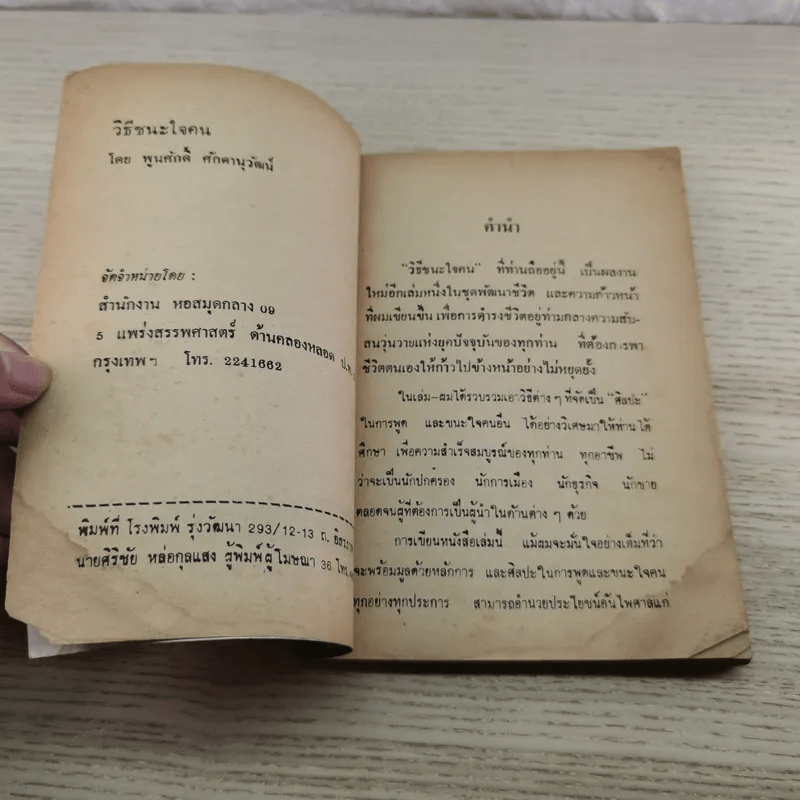 วิธีชนะใจคน
โดย พูนศักดิ์ ศักดานุวัฒน์
จัดจำหน่ายโดย :
สำนักงาน หอสมุดกลาง 09
5 แพร่งสรรพศาสตร์ ด้านคลองหลอด
กรุงเทพฯ โทร. 2241662
พิมพ์ที่ โรงพิมพ์ รุ่งวัฒนา 293/12-13 ถ.
นายศิริชัย หล่อกุลแสง ผู้พิมพ์ผู้โฆษณา 36 โทร.
คำนำ
"วิธีชนะใจคน" ที่ท่านถืออยู่นี้ เป็นผลงาน
ใหม่อีกเล่มหนึ่งในชุดพัฒนาชีวิต และความก้าวหน้า
ที่ผมเขียนขึ้น เพื่อการดำรงชีวิตอยู่ท่ามกลางความสับ-
สนวุ่นวายแห่งยุคปัจจุบันของทุกท่าน ที่ต้องการพา
ชีวิตตนเองให้ก้าวไปข้างหน้าอย่างไม่หยุดยั้ง
ในเล่ม-ผมได้รวบรวมเอาวิธีต่าง ๆ ที่จัดเป็น "ศิลปะ"
ในการพูด และชนะใจคนอื่น ได้อย่างวิเศษมาให้ท่านได้
ศึกษา เพื่อความสำเร็จสมบูรณ์ของทุกท่าน ทุกอาชีพ ไม่
ว่าจะเป็นนักปกครอง นักการเมือง นักธุรกิจ นักขาย
ตลอดจนผู้ที่ต้องการเป็นผู้นำในด้านต่าง ๆ ด้วย
การเขียนหนังสือเล่มนี้ แม้ผมจะมั่นใจอย่างเต็มที่ว่า
จะพร้อมมูลด้วยหลักการ และศิลปะในการพูดและชนะใจคน
ทุกอย่างทุกประการ สามารถอำนวยประโยชน์อันไพศาลแก่